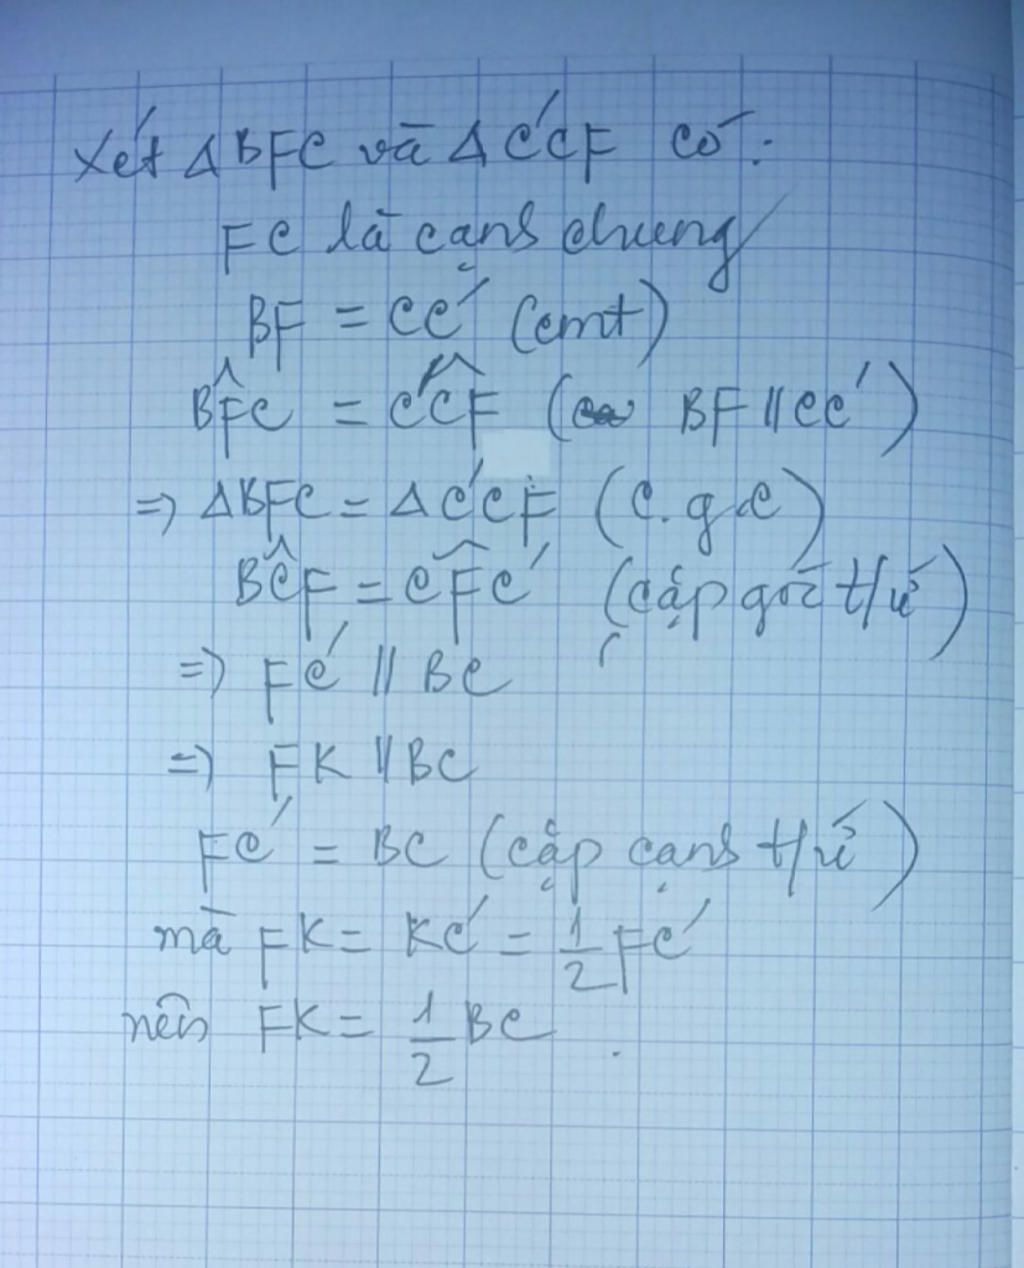 Xét ΔBFC và ΔC'CF có:
FC là cạnh chung
BF = CC' (cmt)
BF̂C = C'ĈF ( BF // CC' )
=> ΔBFC = ΔC'CF (c.g.c)
BĈF = CF̂C' (cặp góc t/ứ)
=> FC' // BC
=> FK // BC
FC' = BC (cặp cạnh t/ứ)
mà FK = KC' = 1/2 FC'
nên FK = 1/2 BC.